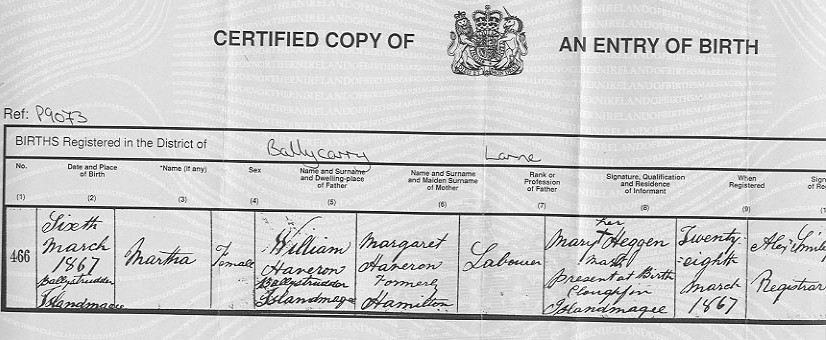 CERTIFIED COPY OF AN ENTRY OF BIRTH
Ref: P9073
BIRTHS Registered in the District of Ballycarry Larne
No. Date and Place of Birth *Name (if any) Sex Name and Surname and Dwelling-place of Father Name and Surname and Maiden Surname of Mother Rank or Profession of Father Signature, Qualification and Residence of Informant When Registered
(1) (2) (3) (4) (5) (6) (7) (8) (9)
466
Sixth
March
1867
Ballystrudder
Islandmagee
Martha
Female
William
Haveron
Ballystrudder
Islandmagee
Margaret
Haveron
Formerly
Hamilton
Labourer
her
Mary + Heggen
mark
Present at Birth
Cloughfin
Islandmagee
Twenty
eighth
March
1867
Registrar